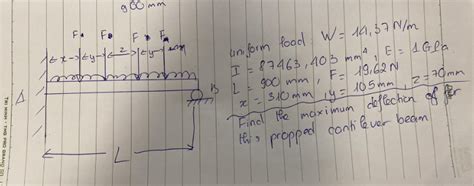 900 mm
F F F F
x y z y x
A
B
L
uniform load: W = 14,37 N/m
I = 87463,403 mm⁴, E = 1GPa
L = 900 mm, F = 19,62N
x = 310mm, y = 105mm, z = 70mm
Find the maximum deflection of fer
this propped contilever beam